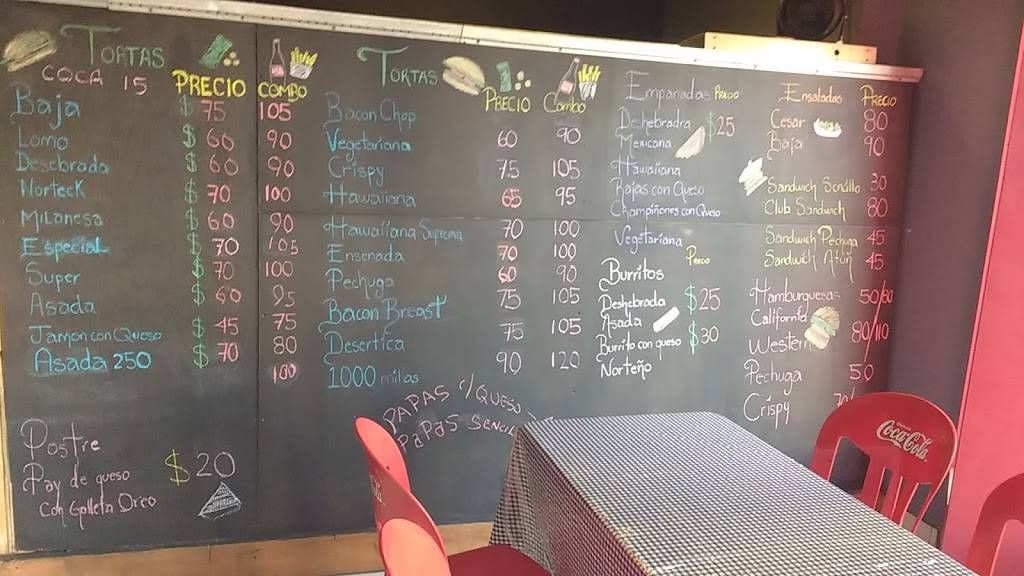 TORTAS
COCA 15
PRECIO COMBO
Baja $ 75 105
Lomo $ 60 90
Desebrada $ 60 90
Norteck $ 70 100
Milanesa $ 60 90
Especial $ 70 105
Super $ 70 100
Asada $ 60 95
Jamon con Queso $ 45 75
Asada 250 $ 70 80
100
Postre
Pay de queso $ 20
Con Galleta Oreo
TORTAS
PRECIO Combo
Bacon Chop 60 90
Vegetariana 75 105
Crispy 65 95
Hawaiiana 70 100
Hawaiiana Suprema 70 100
Ensenada 60 90
Pechuga 75 105
Bacon Breast 75 105
Desertica 90 120
1000 millas
PAPAS c/QUESO
PAPAS
Empanadas Precio
Dehebradra $25
Mexicana
Hawaiiana
Rajas con Queso
Champiñones con Queso
Vegetariana
Burritos Precio
Deshebrada $25
Asada
Burrito con queso $30
Norteño
Ensaladas Precio
Cesar 80
Baja 90
Sandwich Sencillo 30
Club Sandwich 80
Sandwich Pechuga 45
Sandwich Atun 45
Hamburguesas 50/80
California
Western 80/110
Pechuga 50
Crispy
Coca-Cola